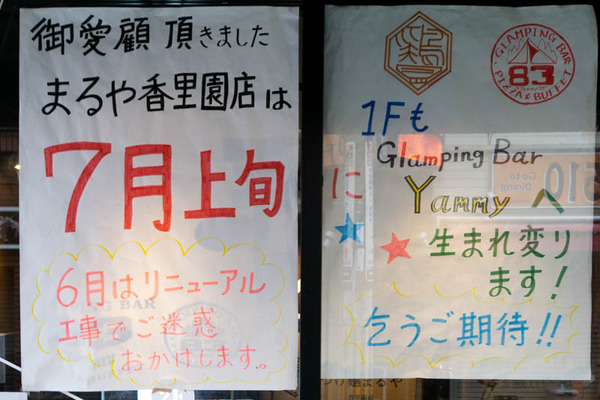 御愛顧頂きました
まるや香里園店は
7月上旬
6月はリニューアル
工事でご迷惑
おかけします。
に
GLAMPING BAR
83
PIZZA & BUFFET
1Fも
Glamping Bar
Yammy へ
生まれ変り
ます!
乞うご期待!!
Go to
Dining
510